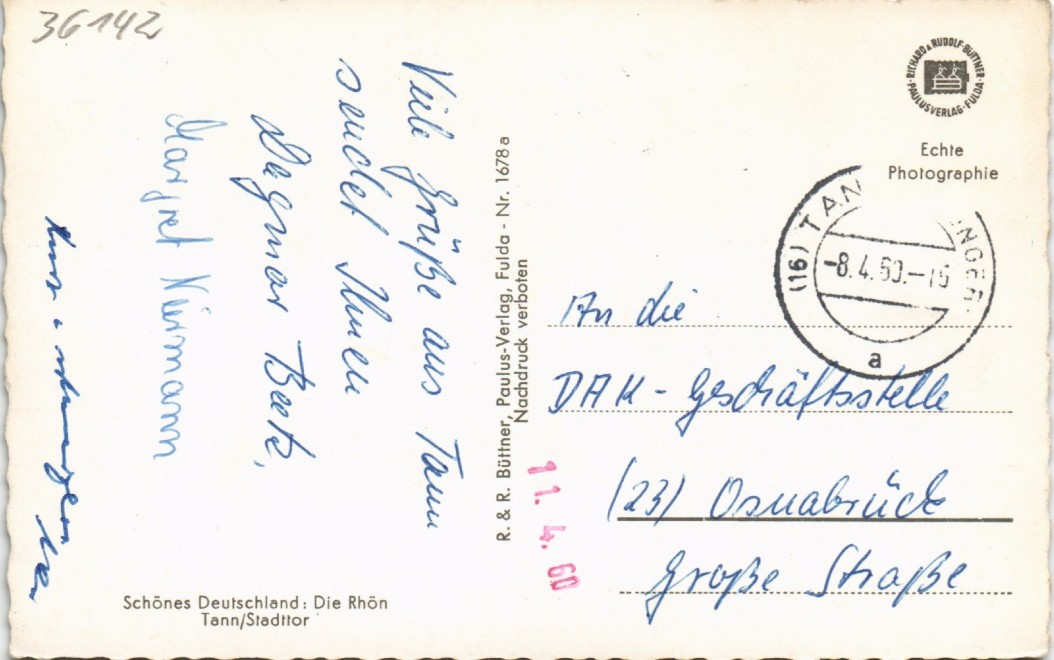 36142
Viele Grüße aus Tann
sendet Ihnen
Dagmar Beek,
Margret Niermann
Schönes Deutschland: Die Rhön
Tann/Stadttor
R. & R. Büttner, Paulus-Verlag, Fulda - Nr. 1678a
Nachdruck verboten
11. 4. 60
RICHARD & RUDOLF BÜTTNER
PAULUSVERLAG · FULDA
Echte
Photographie
(16) TANN
-8.4.60.-16
a
An die
DAK-Geschäftsstelle
(23) Osnabrück
Große Straße